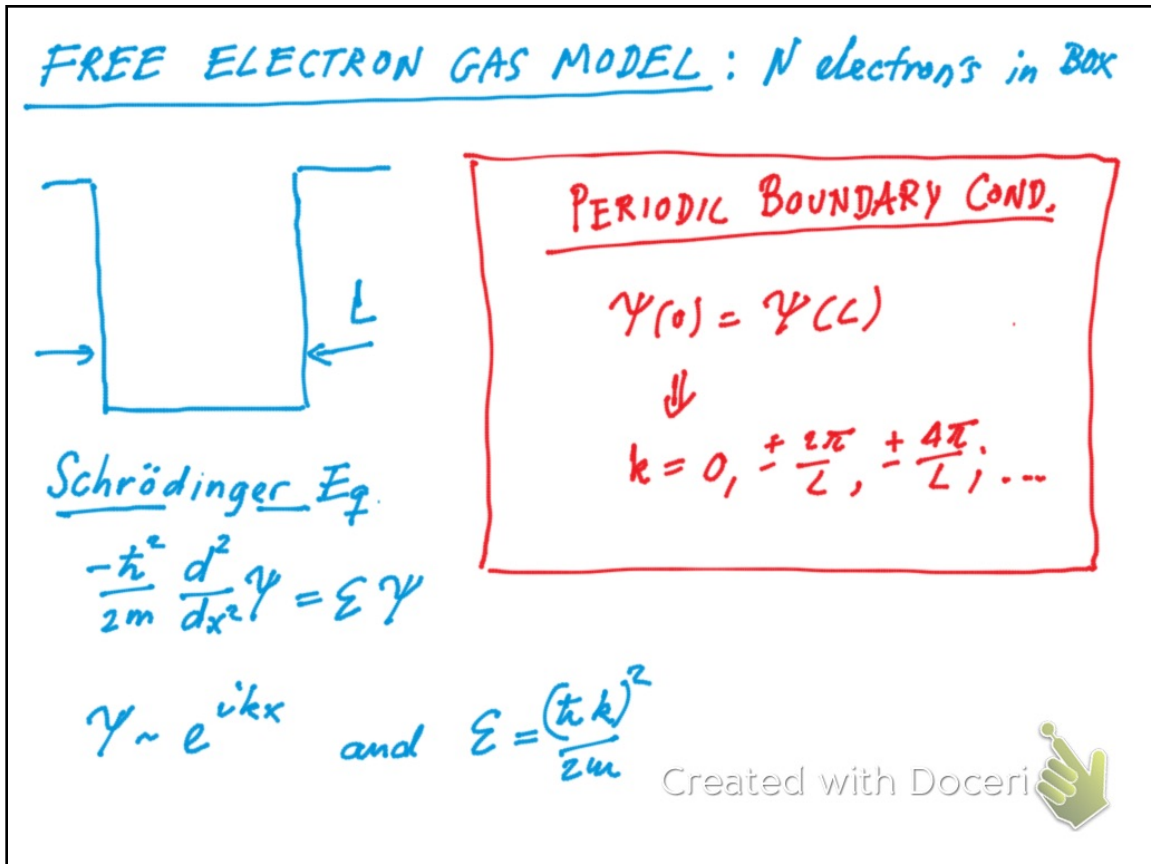 FREE ELECTRON GAS MODEL : N electron's in BOX
L
Schrödinger Eq.
-ħ²/2m d²/dx² Ψ = ε Ψ
Ψ ~ e^{ikx} and ε = (ħk)²/2m
PERIODIC BOUNDARY COND.
Ψ(0) = Ψ(L)
⇓
k = 0, ± 2π/L, ± 4π/L, ....
Created with Doceri